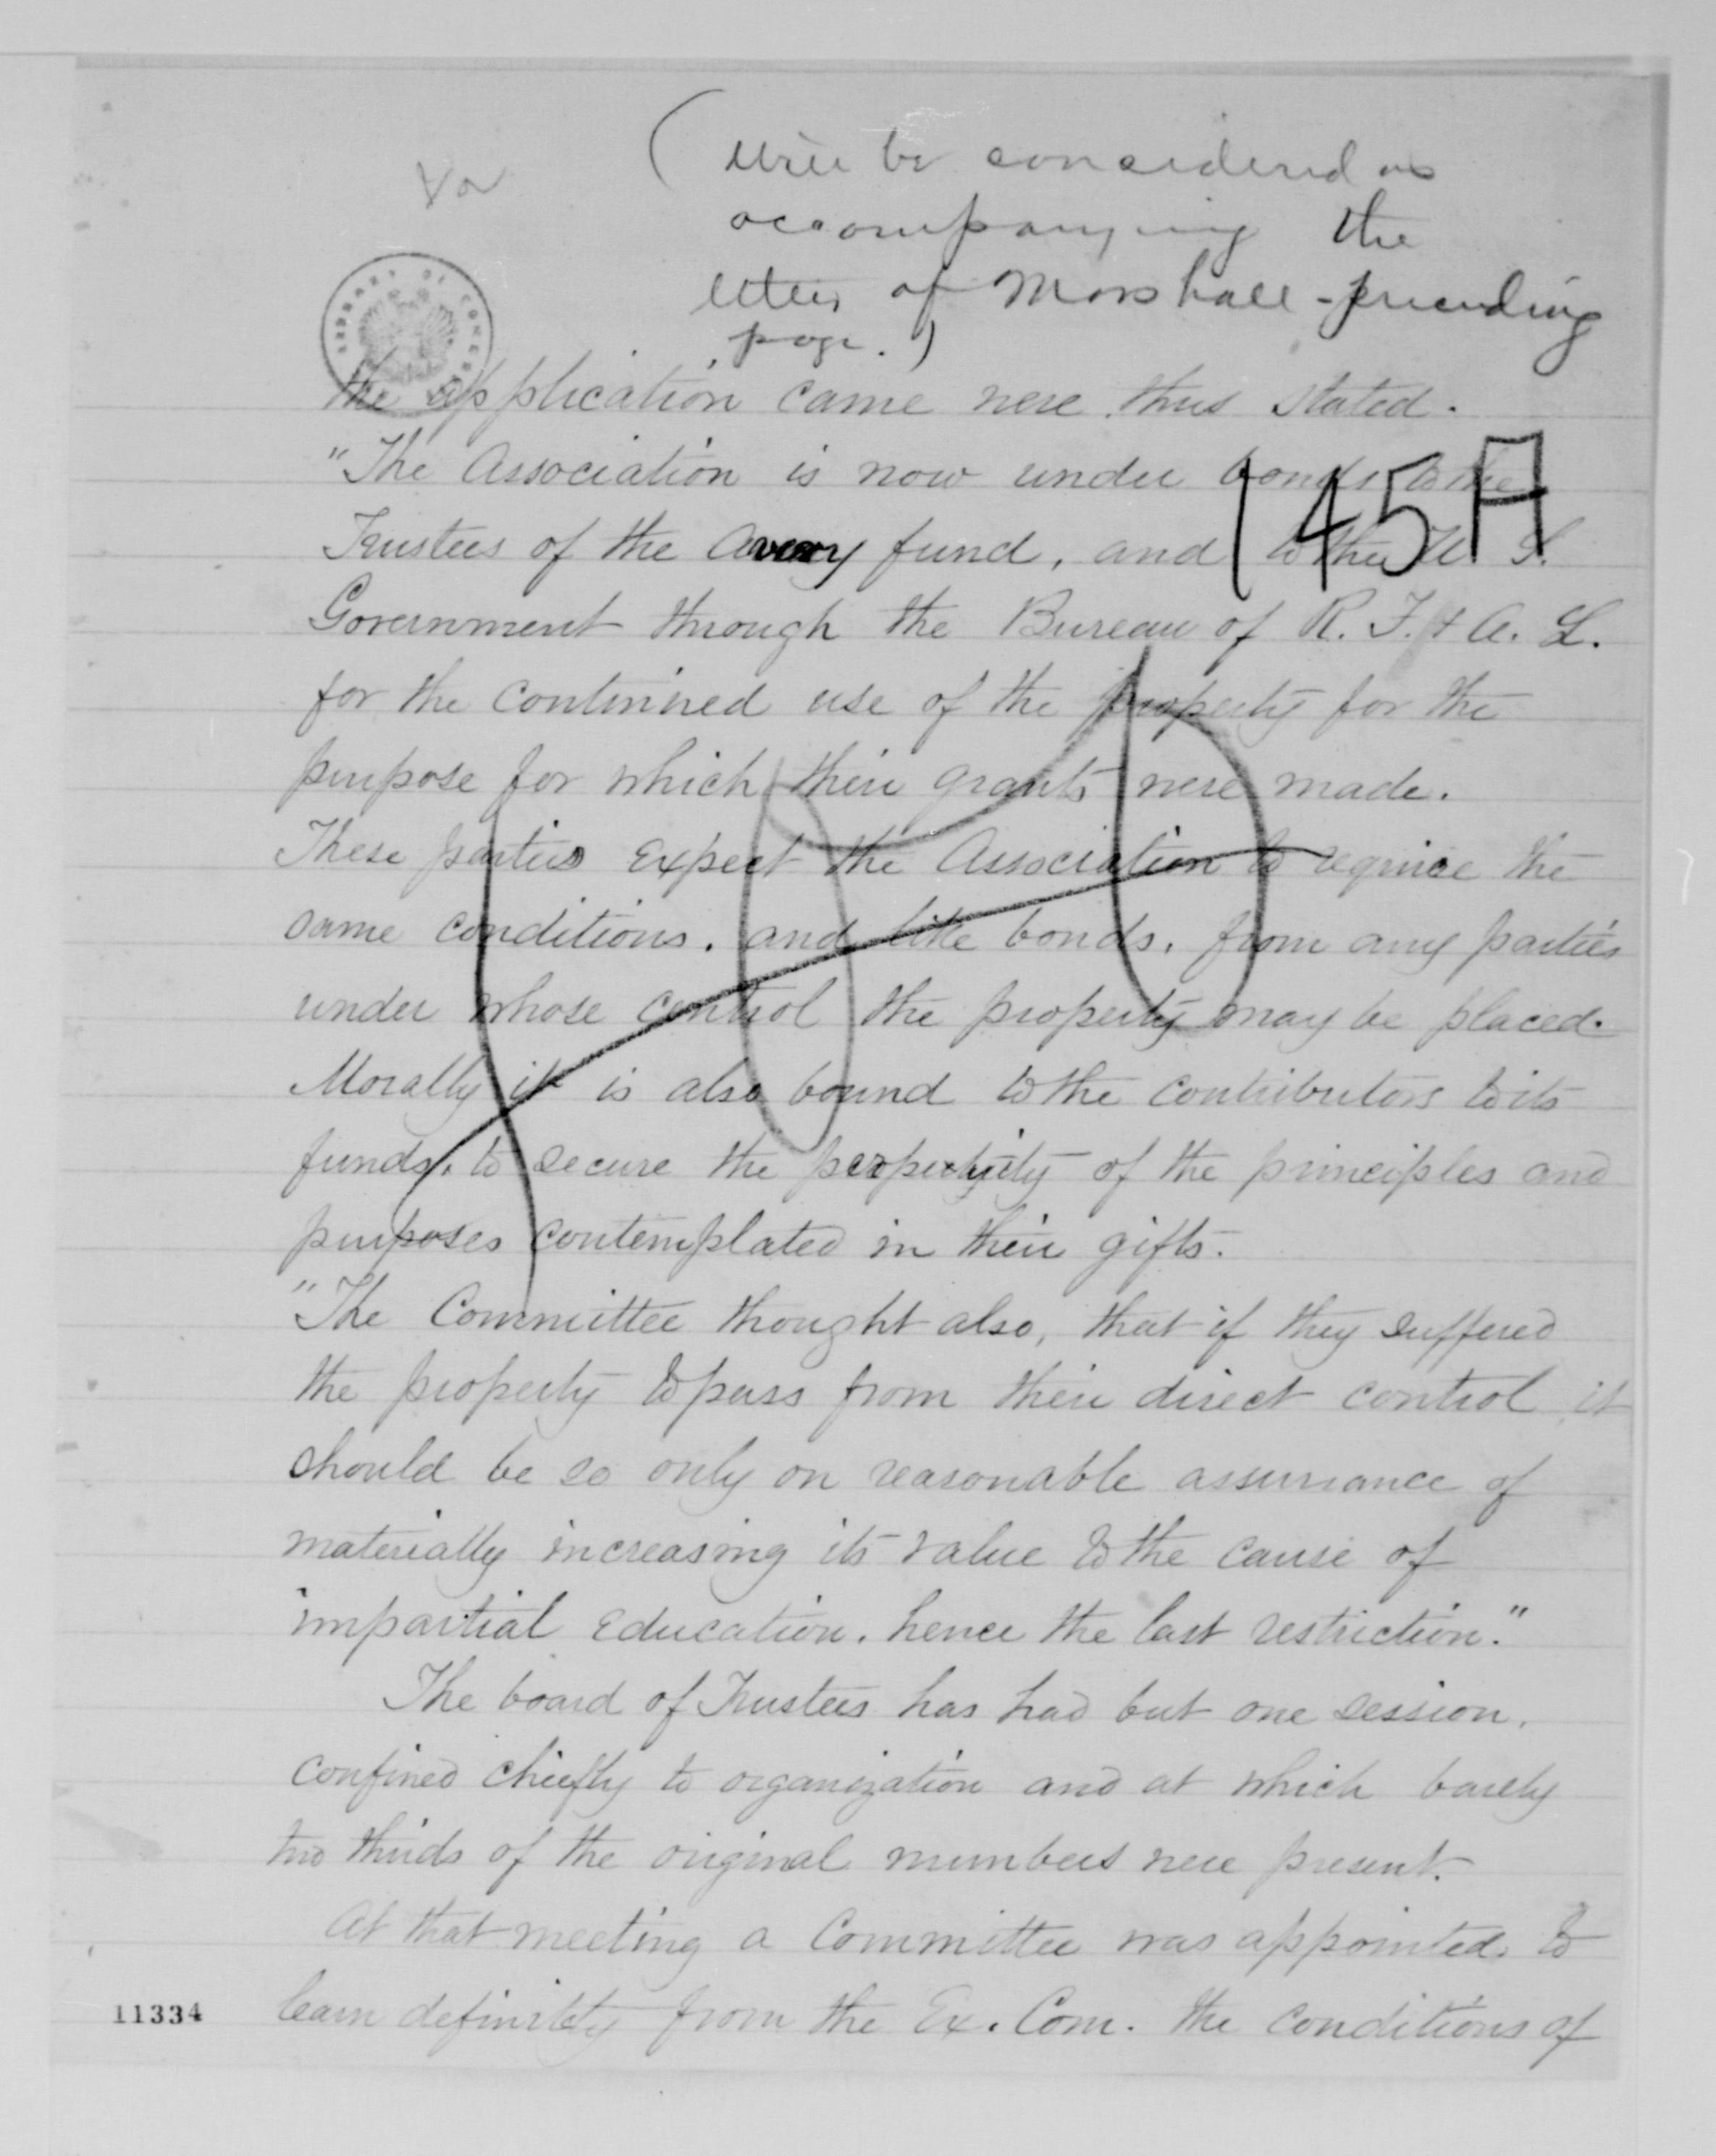 (will be considered as
accompanying the
letter of Marshall - preceding
page.)
LIBRARY OF CONGRESS
the application came here thus stated.
"The Association is now under bonds to the
145A
Trustees of the Avery fund, and to the U. S.
Government through the Bureau of R. F. & A. L.
for the continued use of the property for the
purpose for which their grants were made.
These parties expect the Association to require the
same conditions, and like bonds, from any parties
under whose control the property may be placed.
Morally it is also bound to the contributors to its
funds, to secure the perpetuity of the principles and
purposes contemplated in their gifts.
"The Committee thought also, that if they suffered
the property to pass from their direct control it
should be so only on reasonable assurance of
materially increasing its value to the cause of
impartial education, hence the last restriction."
The board of Trustees has had but one session,
confined chiefly to organization and at which barely
two thirds of the original numbers were present.
At that meeting a Committee was appointed to
learn definitely from the Ex. Com. the conditions of
11334